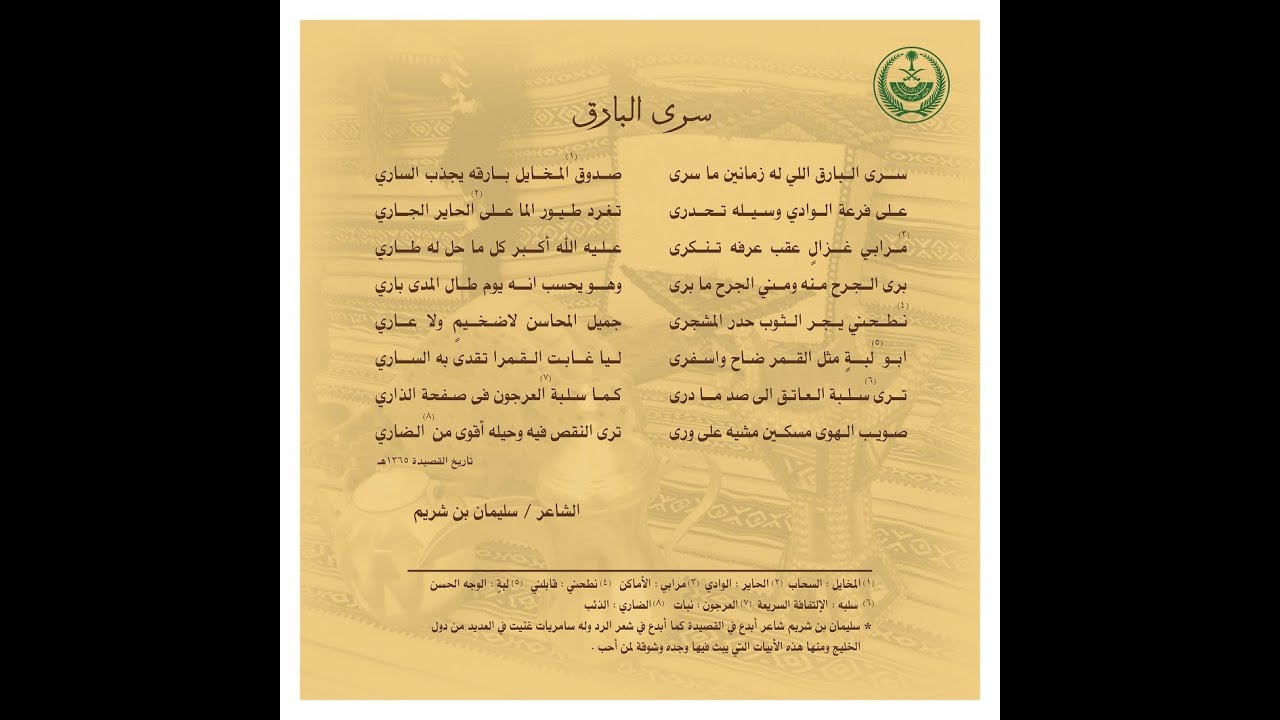 سرى البارق
سرى البارق اللي له زمانين ما سرى صدوق المخايل(١) بارقه يجذب الساري
على فرعة الوادي وسيله تحدرى تغرد طيور الما على(٢) الحاير الجاري
مرابي(٣) غزالٍ عقب عرفه تنكرى عليه الله أكبر كل ما حل له طاري
برى الجرح منه ومني الجرح ما برى وهو يحسب انه يوم طال المدى باري
نطحني(٤) يجر الثوب حدر المشجرى جميل المحاسن لاضخيمٍ ولا عاري
ابو(٥) لبةٍ مثل القمر ضاح واسفرى ليا غابت القمرا تقدى به الساري
ترى(٦) سلبة العاتق الى صد ما درى كما سلبة(٧) العرجون فى صفحة الذاري
صويب الهوى مسكين مشيه على ورى ترى النقص فيه وحيله أقوى من(٨) الضاري
تاريخ القصيدة ١٣٦٥هـ
الشاعر / سليمان بن شريم
(١) المخايل : السحاب (٢) الحاير : الوادي (٣) مرابي : الأماكن (٤) نطحني : قابلني (٥) لبةٍ : الوجه الحسن
(٦) سلبه : الإلتفافة السريعة (٧) العرجون : نبات (٨) الضاري : الذئب
* سليمان بن شريم شاعر أبدع في القصيدة كما أبدع في شعر الرد وله سامريات غنيت في العديد من دول
الخليج ومنها هذه الأبيات التي يبث فيها وجده وشوقة لمن أحب .